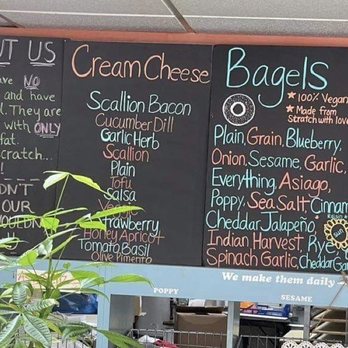 T US
ve NO
and have
d. They are
with ONLY
fat.
cratch...
DN'T
OUR
Cream Cheese
Scallion Bacon
Cucumber Dill
Garlic Herb
Scallion
Plain
Tofu
Salsa
Veggie
Strawberry
Honey Apricot
Tomato Basil
Olive Pimento
Bagels
★ 100% Vegan
★ Made from
Scratch with love
Plain, Grain, Blueberry,
Onion, Sesame, Garlic,
Everything, Asiago,
Poppy, Sea Salt, Cinnam
Cheddar Jalapeño
Indian Harvest, Rye
Spinach Garlic, Cheddar Garl
We make them daily
POPPY
SESAME